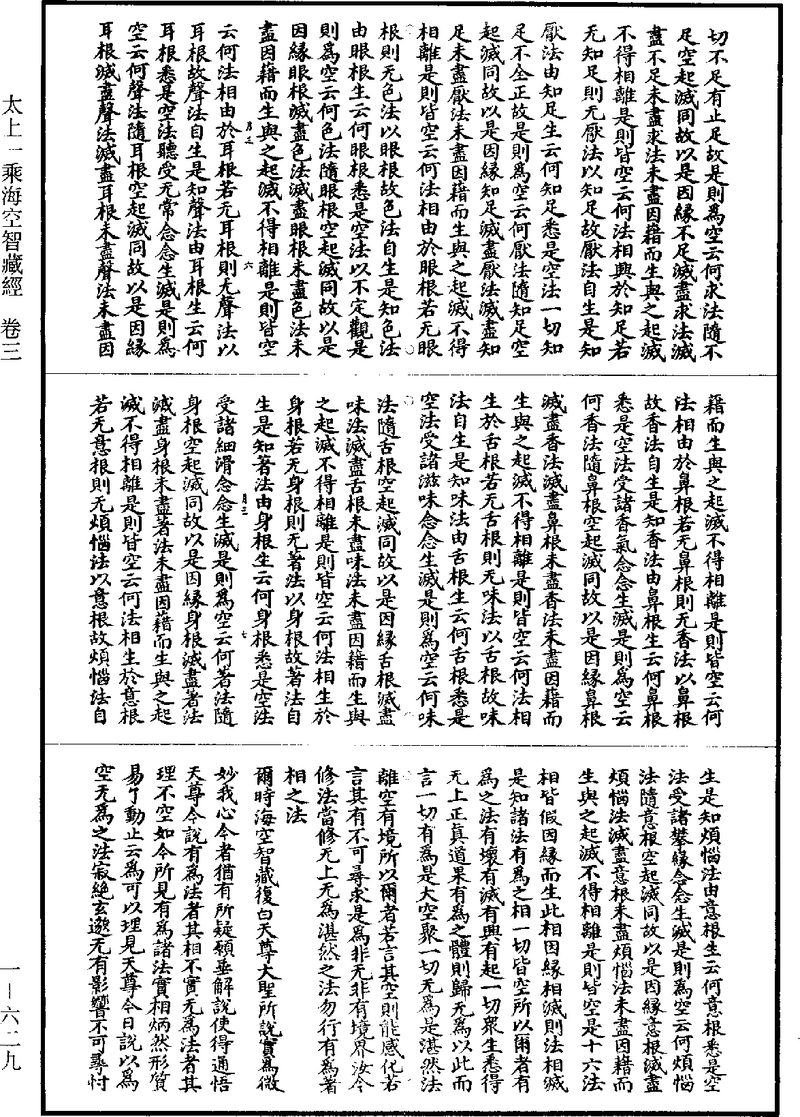 太上一乘海空智藏經　卷三
一—六二九
切不足有止足故是則爲空云何求法隨不
足空起滅同故以是因緣不足滅盡求法滅
盡不足未盡求法未盡因藉而生與之起滅
不得相離是則皆空云何法相興於知足若
无知足則无厭法以知足故厭法自生是知
厭法由知足生云何知足悉是空法一切知
足不全正故是則爲空云何厭法隨知足空
起滅同故以是因緣知足滅盡厭法滅盡知
足未盡厭法未盡因藉而生與之起滅不得
相離是則皆空云何法相由於眼根若无眼
根則无色法以眼根故色法自生是知色法
由眼根生云何眼根悉是空法以不定觀是
則爲空云何色法隨眼根空起滅同故以是
因緣眼根滅盡色法滅盡眼根未盡色法未
盡因藉而生與之起滅不得相離是則皆空
六
云何法相由於耳根若无耳根則无聲法以
耳根故聲法自生是知聲法由耳根生云何
耳根悉是空法聽受无常念念生滅是則爲
空云何聲法隨耳根空起滅同故以是因緣
耳根滅盡聲法滅盡耳根未盡聲法未盡因
藉而生與之起滅不得相離是則皆空云何
法相由於鼻根若无鼻根則无香法以鼻根
故香法自生是知香法由鼻根生云何鼻根
悉是空法受諸香氣念念生滅是則爲空云
何香法隨鼻根空起滅同故以是因緣鼻根
滅盡香法滅盡鼻根未盡香法未盡因藉而
生與之起滅不得相離是則皆空云何法相
生於舌根若无舌根則无味法以舌根故味
法自生是知味法由舌根生云何舌根悉是
空法受諸滋味念念生滅是則爲空云何味
法隨舌根空起滅同故以是因緣舌根滅盡
味法滅盡舌根未盡味法未盡因藉而生與
之起滅不得相離是則皆空云何法相生於
身根若无身根則无著法以身根故著法自
生是知著法由身根生云何身根悉是空法
七
受諸細滑念念生滅是則爲空云何著法隨
身根空起滅同故以是因緣身根滅盡著法
滅盡身根未盡著法未盡因藉而生與之起
滅不得相離是則皆空云何法相生於意根
若无意根則无煩惱法以意根故煩惱法自
生是知煩惱法由意根生云何意根悉是空
法受諸攀緣念念生滅是則爲空云何煩惱
法隨意根空起滅同故以是因緣意根滅盡
煩惱法滅盡意根未盡煩惱法未盡因藉而
生與之起滅不得相離是則皆空是十六法
相皆假因緣而生此相因緣相滅則法相滅
是知諸法有爲之相一切皆空所以爾者有
爲之法有壞有滅有興有起一切衆生悉得
无上正真道果有爲之體則歸无爲以此而
言一切有爲是大空聚一切无爲是湛然法
離空有境所以爾者若言其空則能感化若
言其有不可尋求是爲非无非有境界汝今
修法當修无上无爲湛然之法勿行有爲著
相之法
爾時海空智藏復白天尊大聖所說實爲微
妙我心今者猶有所疑願垂解說使得通悟
天尊今說有爲法者其相不實无爲法者其
理不空如今所見有爲諸法實相炳然形質
易了動止云爲可以理見天尊今日說以爲
空无爲之法寂絕玄邈无有影響不可尋忖